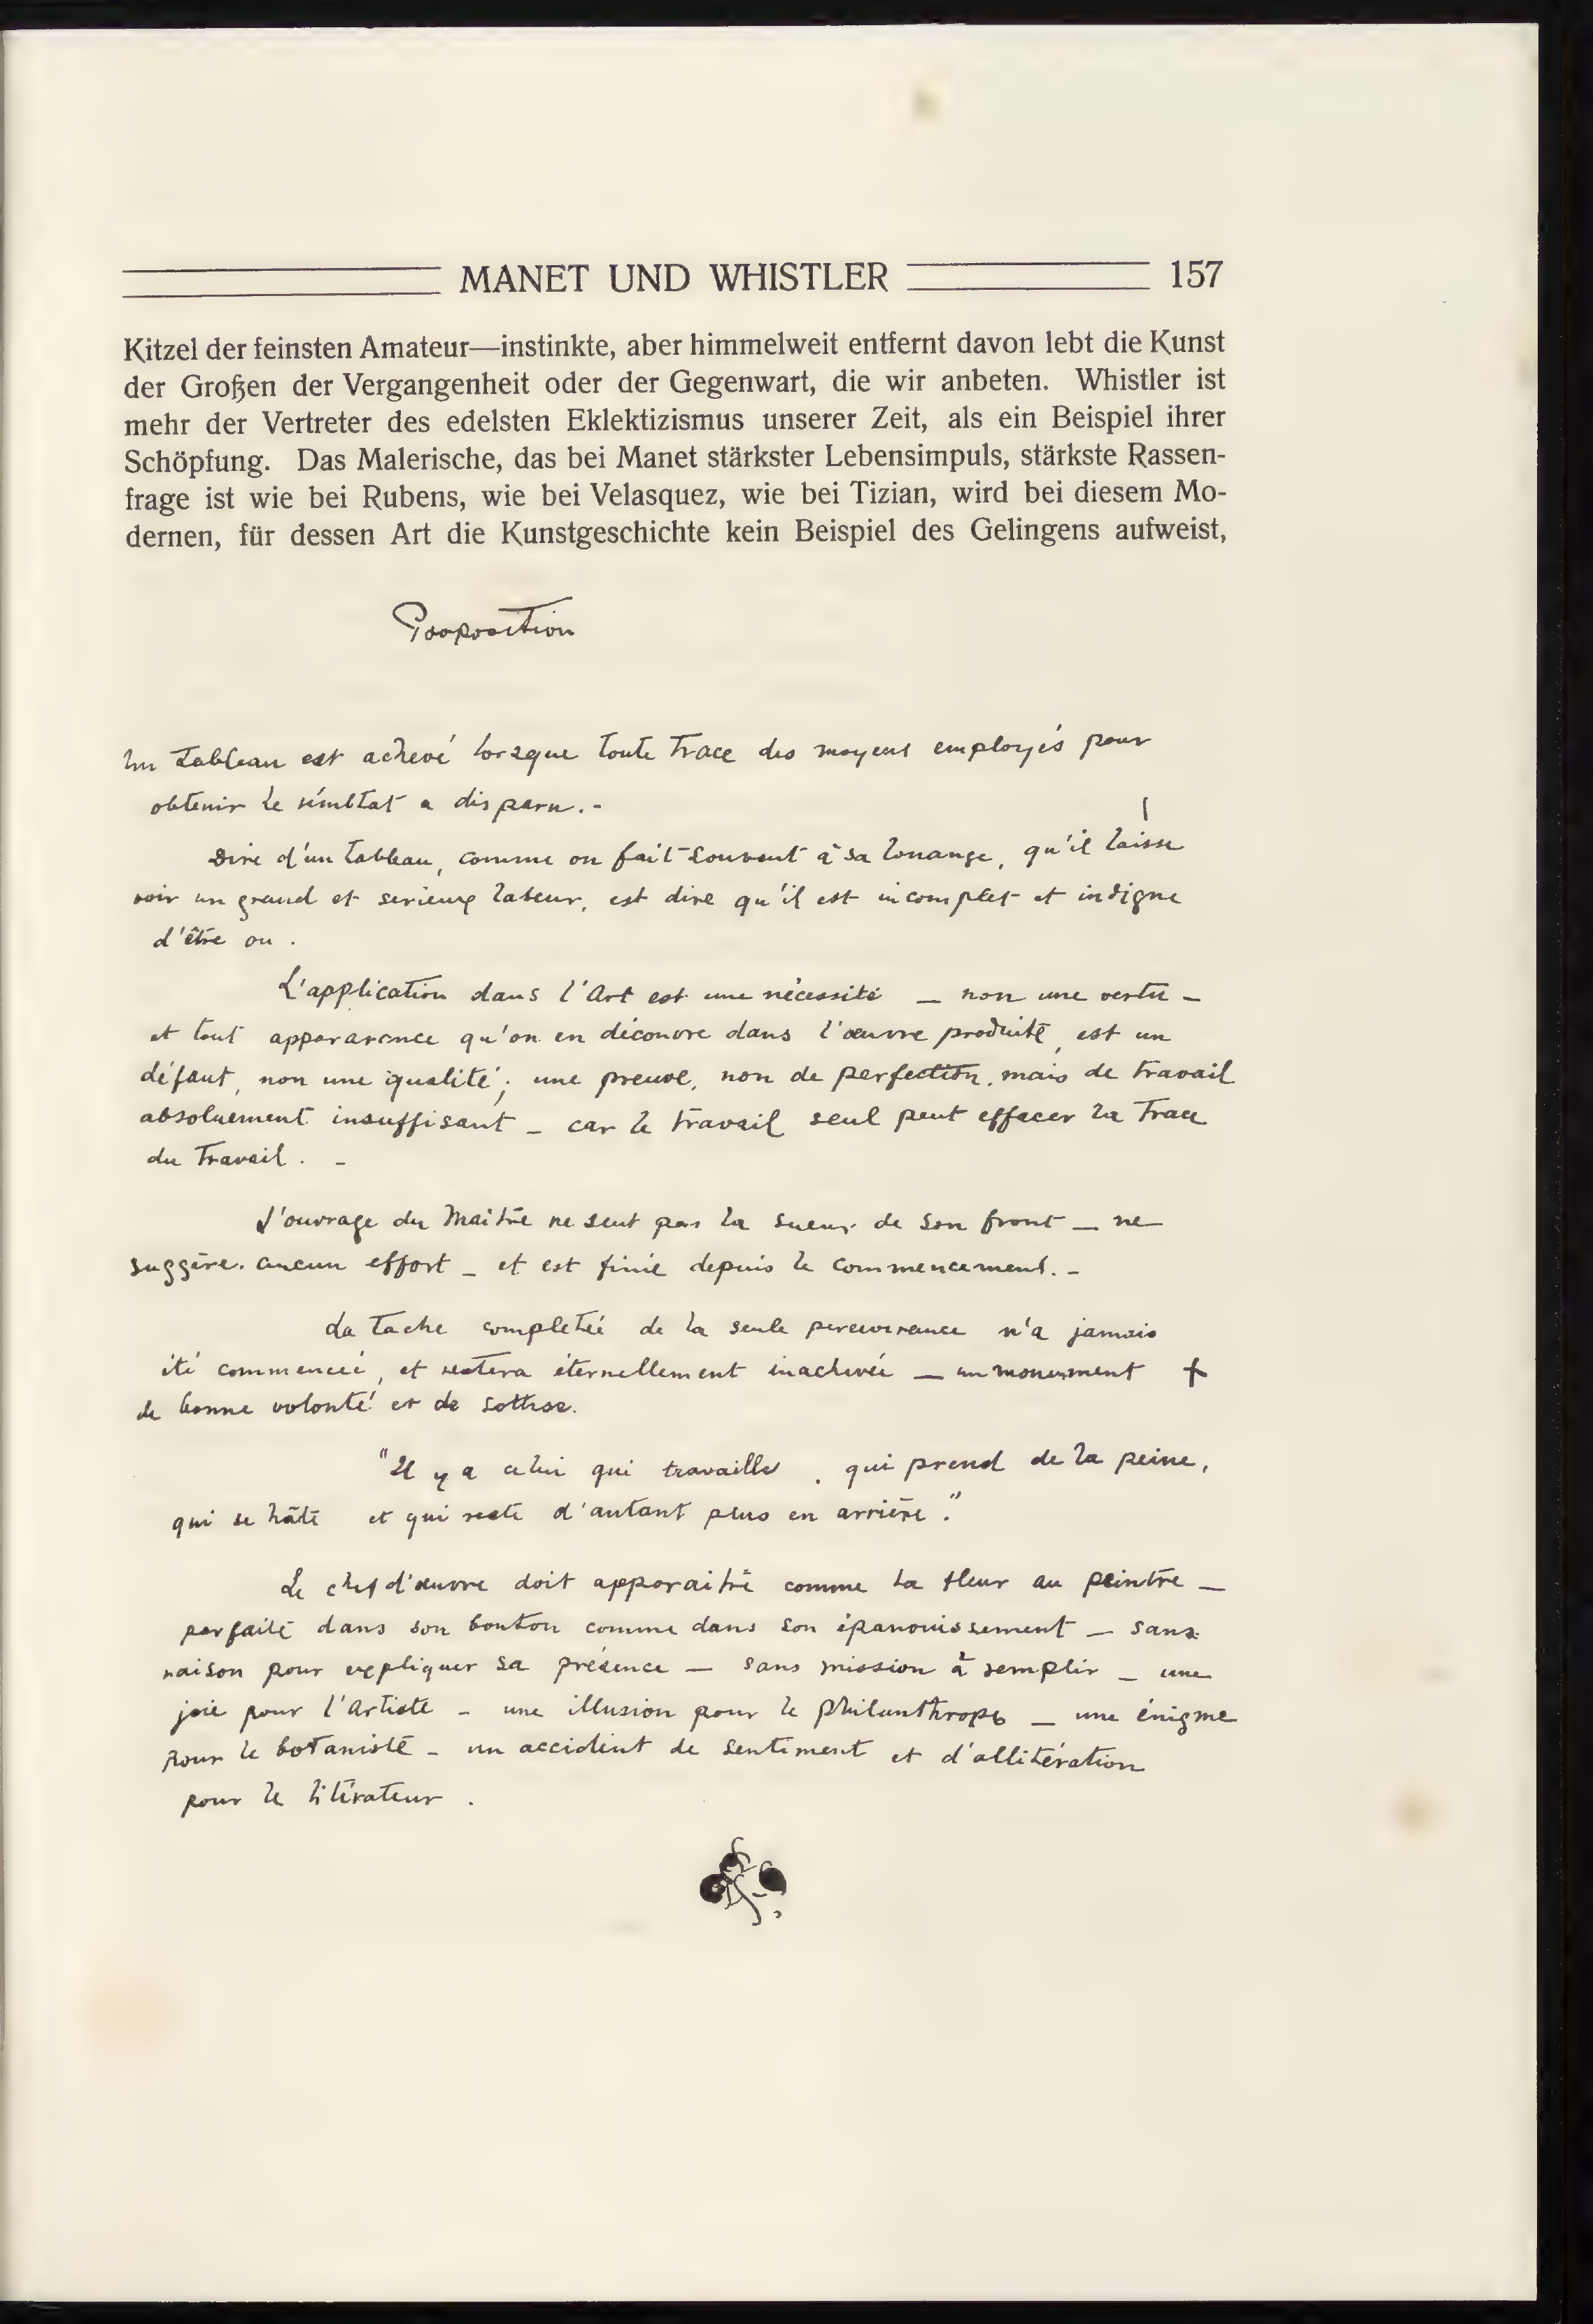 MANET UND WHISTLER 157
Kitzel der feinsten Amateur—instinkte, aber himmelweit entfernt davon lebt die Kunst
der Großen der Vergangenheit oder der Gegenwart, die wir anbeten. Whistler ist
mehr der Vertreter des edelsten Eklektizismus unserer Zeit, als ein Beispiel ihrer
Schöpfung. Das Malerische, das bei Manet stärkster Lebensimpuls, stärkste Rassen-
frage ist wie bei Rubens, wie bei Velasquez, wie bei Tizian, wird bei diesem Mo-
dernen, für dessen Art die Kunstgeschichte kein Beispiel des Gelingens aufweist,
Proposition
Un tableau est achevé lorsque toute trace des moyens employés pour
obtenir le résultat a disparu. -
Dire d'un tableau, comme on fait souvent à sa louange, qu'il laisse
voir un grand et serieux labeur, est dire qu'il est incomplet et indigne
d'être vu.
L'application dans l'Art est une nécessité — non une vertu —
et tout appararence qu'on en découvre dans l'œuvre produite, est un
défaut, non une qualité; une preuve, non de perfection, mais de travail
absoluement insuffisant — car le travail seul peut effacer la trace
du travail. -
L'ouvrage du Maître ne sent pas la sueur de son front — ne
suggère aucun effort — et est finie depuis le commencement. -
La tache completée de la seule perseverance n'a jamais
été commencée, et restera éternellement inachevée — un monument +
de bonne volonté et de sottise.
"Il y a celui qui travaille, qui prend de la peine,
qui se hâte et qui reste d'autant plus en arrière."
Le chef d'œuvre doit apparaitre comme la fleur au peintre —
parfaite dans son bouton comme dans son épanouissement — sans
raison pour expliquer sa présence — sans mission à remplir — une
joie pour l'Artiste — une illusion pour le philanthrope — une énigme
pour le botaniste — un accident de sentiment et d'allitération
pour le litérateur.